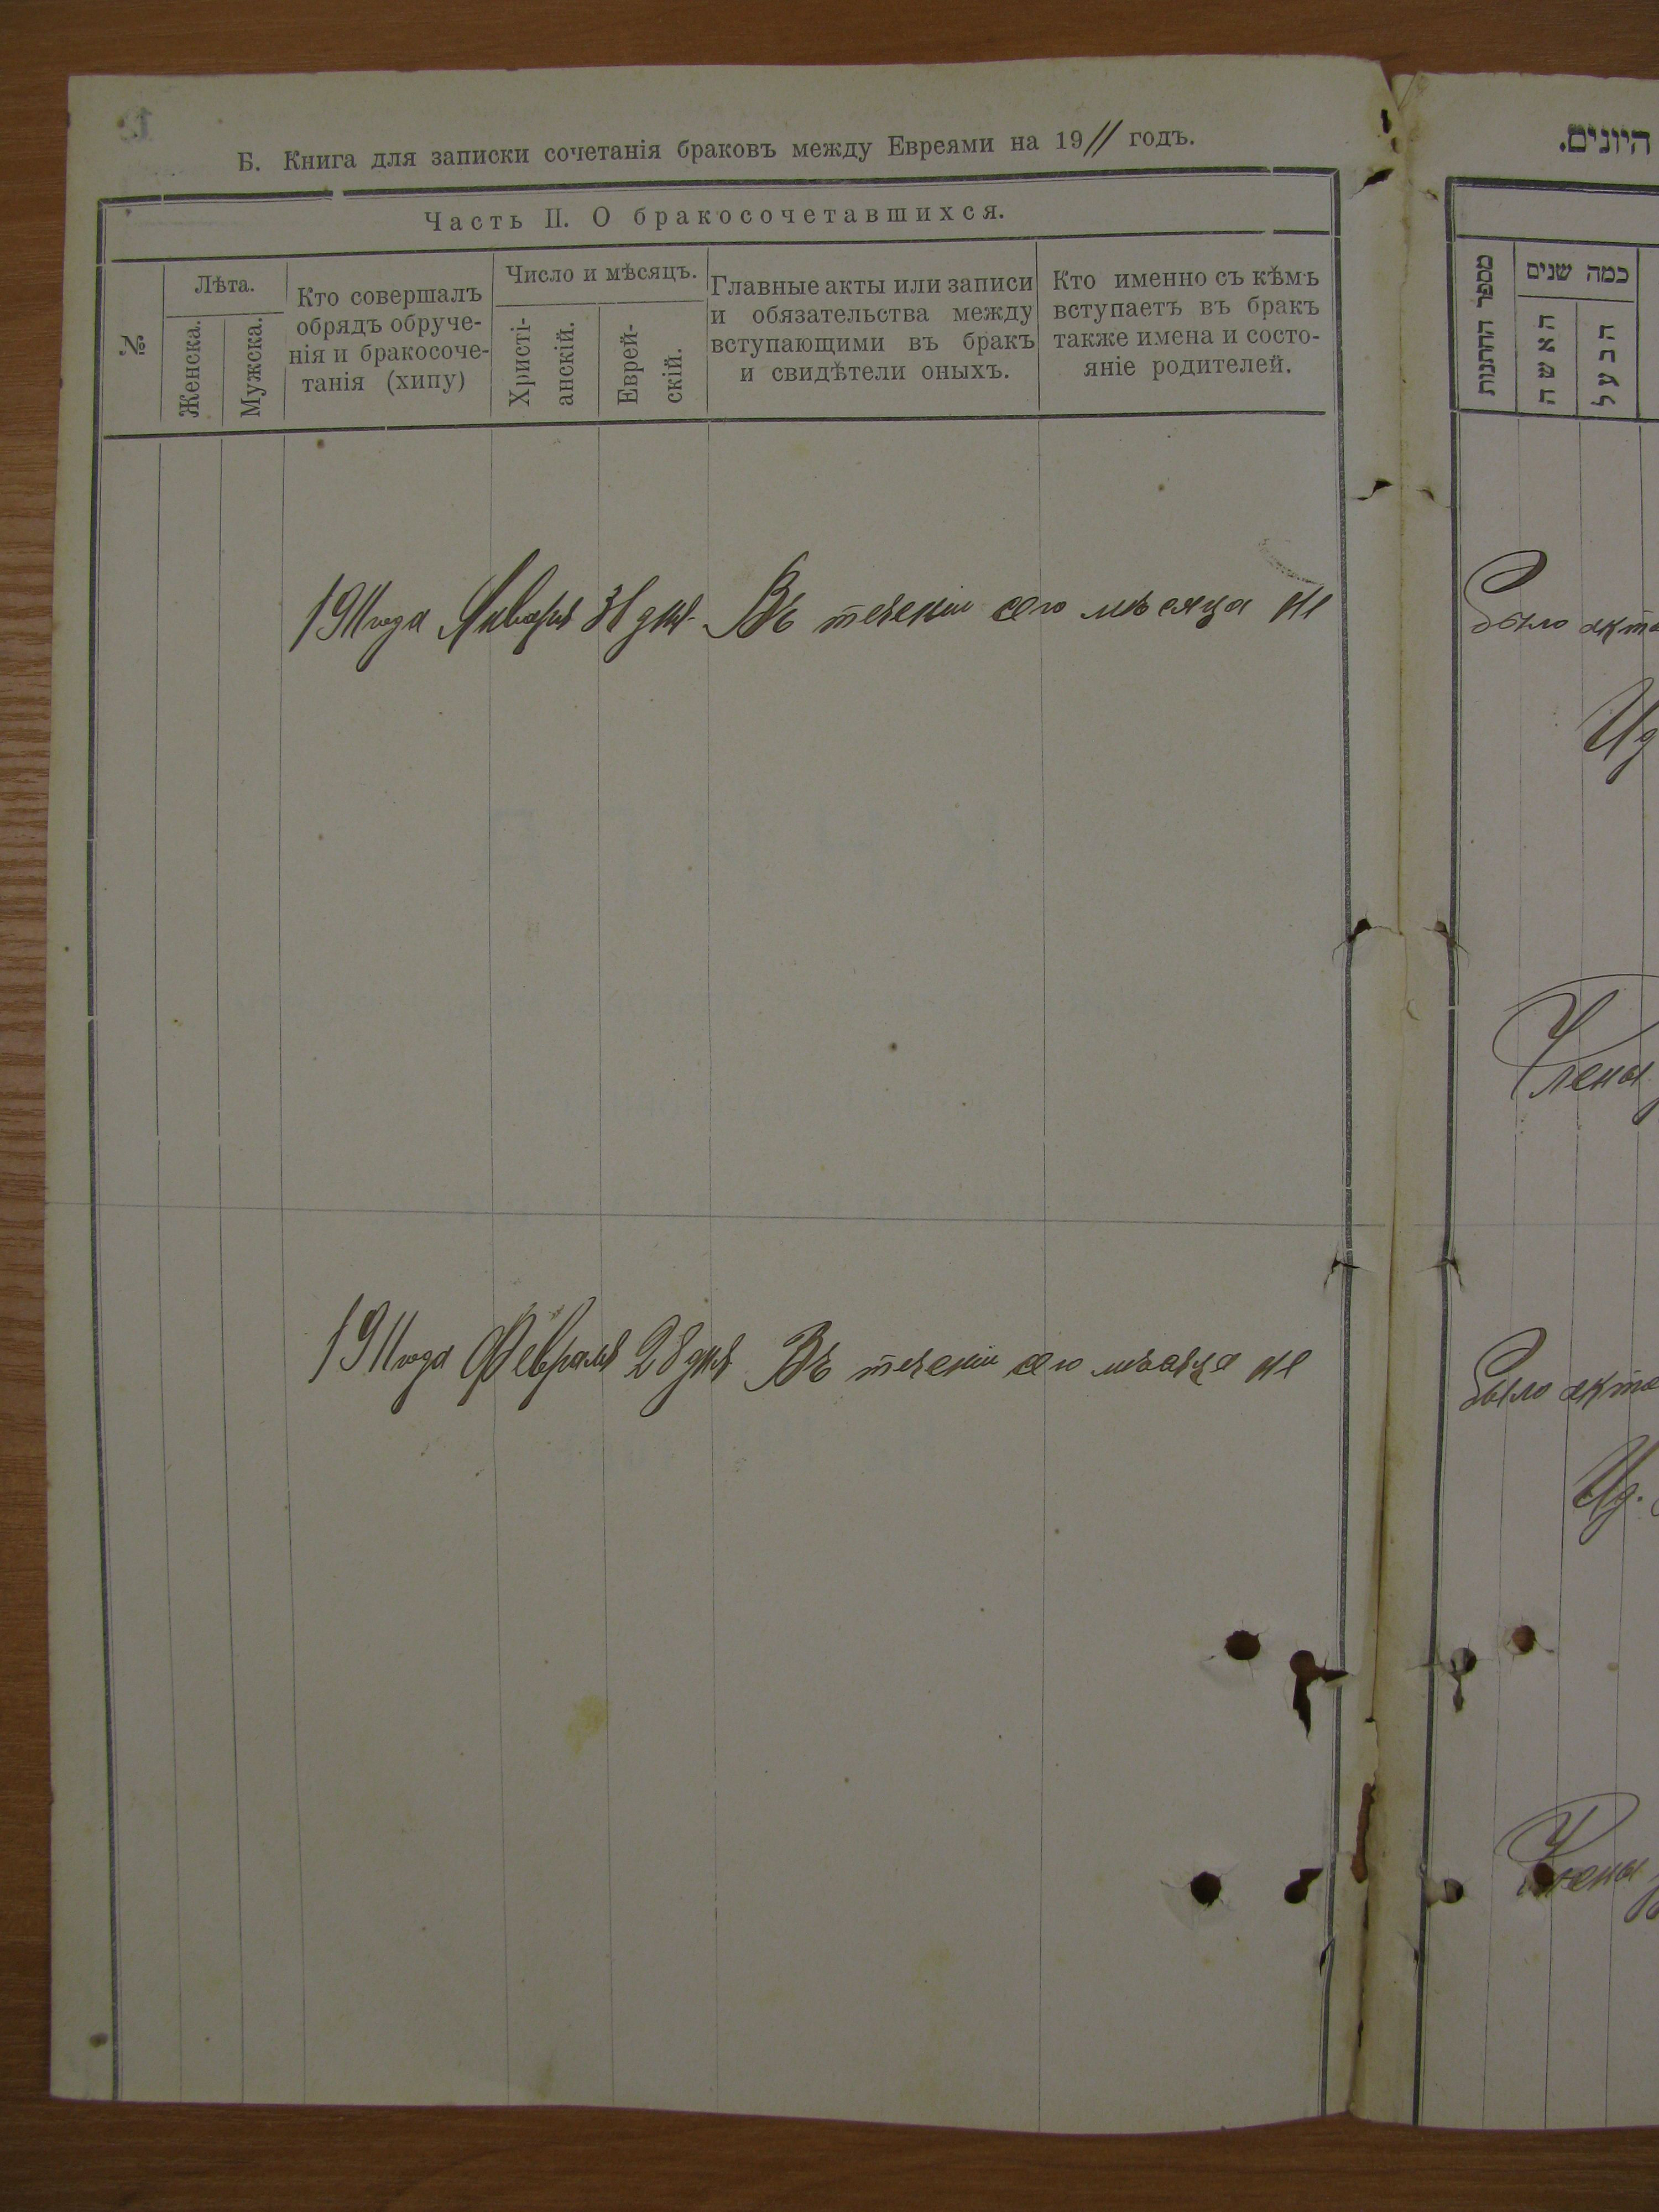 Б. Книга для записки сочетанія браковъ между Евреями на 1911 годъ.
Часть II. О бракосочетавшихся.
№
Лѣта.
Женска.
Мужска.
Кто совершалъ
обрядъ обруче-
нія и бракосоче-
танія (хипу)
Число и мѣсяцъ.
Христі-
анскій.
Еврей-
скій.
Главные акты или записи
и обязательства между
вступающими въ бракъ
и свидѣтели оныхъ.
Кто именно съ кѣмъ
вступаетъ въ бракъ
также имена и состо-
яніе родителей.
1911 года Января 31 дня. Въ теченіи сего мѣсяца не
1911 года Февраля 28 дня Въ теченіи сего мѣсяца не
היונים.
מספר החתנות
כמה שנים
האשה
הבעל
было акто
Чд
Члены
было акто
Члены